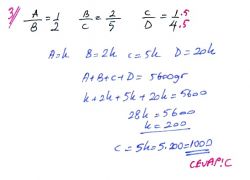 3/ A/B = 1/2 B/C = 2/5 C/D = 1.5/4.5
A=k B=2k C=5k D=20k
A+B+C+D = 5600gr
k+2k+5k+20k = 5600
28k = 5600
k = 200
C = 5k = 5.200 = 1000
CEVAP: C